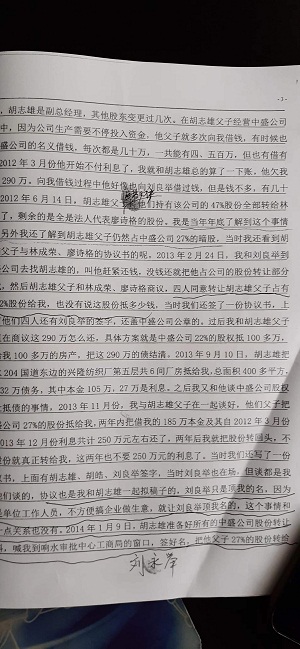 -3-
，胡志雄是副总经理，其他股东变更过几次。在胡志雄父子经营中盛公司
中，因为公司生产需要不停投入资金，他父子就多次向我借钱，有时候也
盛公司的名义借钱，每次都是几十万，一共能有四、五百万，但也有借有
2012年3月份他开始不付利息了，我就和胡志雄总的算了一下账，他欠我
290万。向我借钱过程中他好像也向刘良举借过钱，但是钱不多，有几十
2012年6月14日，胡志雄父子他们持有该公司的47%股份全部转给林
了，剩余的是全是法人代表廖诗格的股份。我是当年年底了解到这个事情
另外我还了解到胡志雄父子仍然占中盛公司27%的暗股，当时我还看到胡
父子与林成荣、廖诗格的协议书的呢。2013年2月24日，我和刘良举到
公司去找胡志雄的，叫他赶紧还钱，没钱还就把他占公司的股份转让部分
我，然后胡志雄父子和林成荣、廖诗格商议，四人同意转让胡志雄父子占有
2%股份给我，也没有说这股份抵多少钱，当时我们还签了一份协议书，上
他们四人还有刘良举的签字，还盖中盛公司公章的。过后我和胡志雄父子
在商议这290万怎么还，具体方案就是中盛公司22%的股权抵100多万，
给我100多万的房产，把这290万的债结清。2013年9月10日，胡志雄把
204国道东边的兴隆纺织厂第五层共6间厂房抵给我，总面积400多平方，
32万债务，其中本金105万，27万是利息。之后我又和他谈中盛公司股权
抵债的事情。2013年11月份，我与胡志雄父子在一起谈好，他们父子把
盛公司27%的股份抵给我，两年内把借我的185万本金及其自2012年3月份
2013年12月份利息共计250万元左右还了，两年后我就把股份转回头，不
股份就真正转给我，这两年也不要250万元的利息了。当时我们还写了一份
书，上面有胡志雄、胡皓、刘良举签字，当时刘良举也在场，但谈都是我
他们谈的，协议也是我和胡志雄一起拟稿子的，刘良举只是顶我的名，因为
是单位工作人员，不方便搞企业做生意，就让刘良举顶我名的，这个事情和
一点关系也没有。2014年1月9日，胡志雄准备好所有的中盛公司股份转让
料，喊我到响水审批中心工商局的窗口，签好名，把他父子27%的股份转给